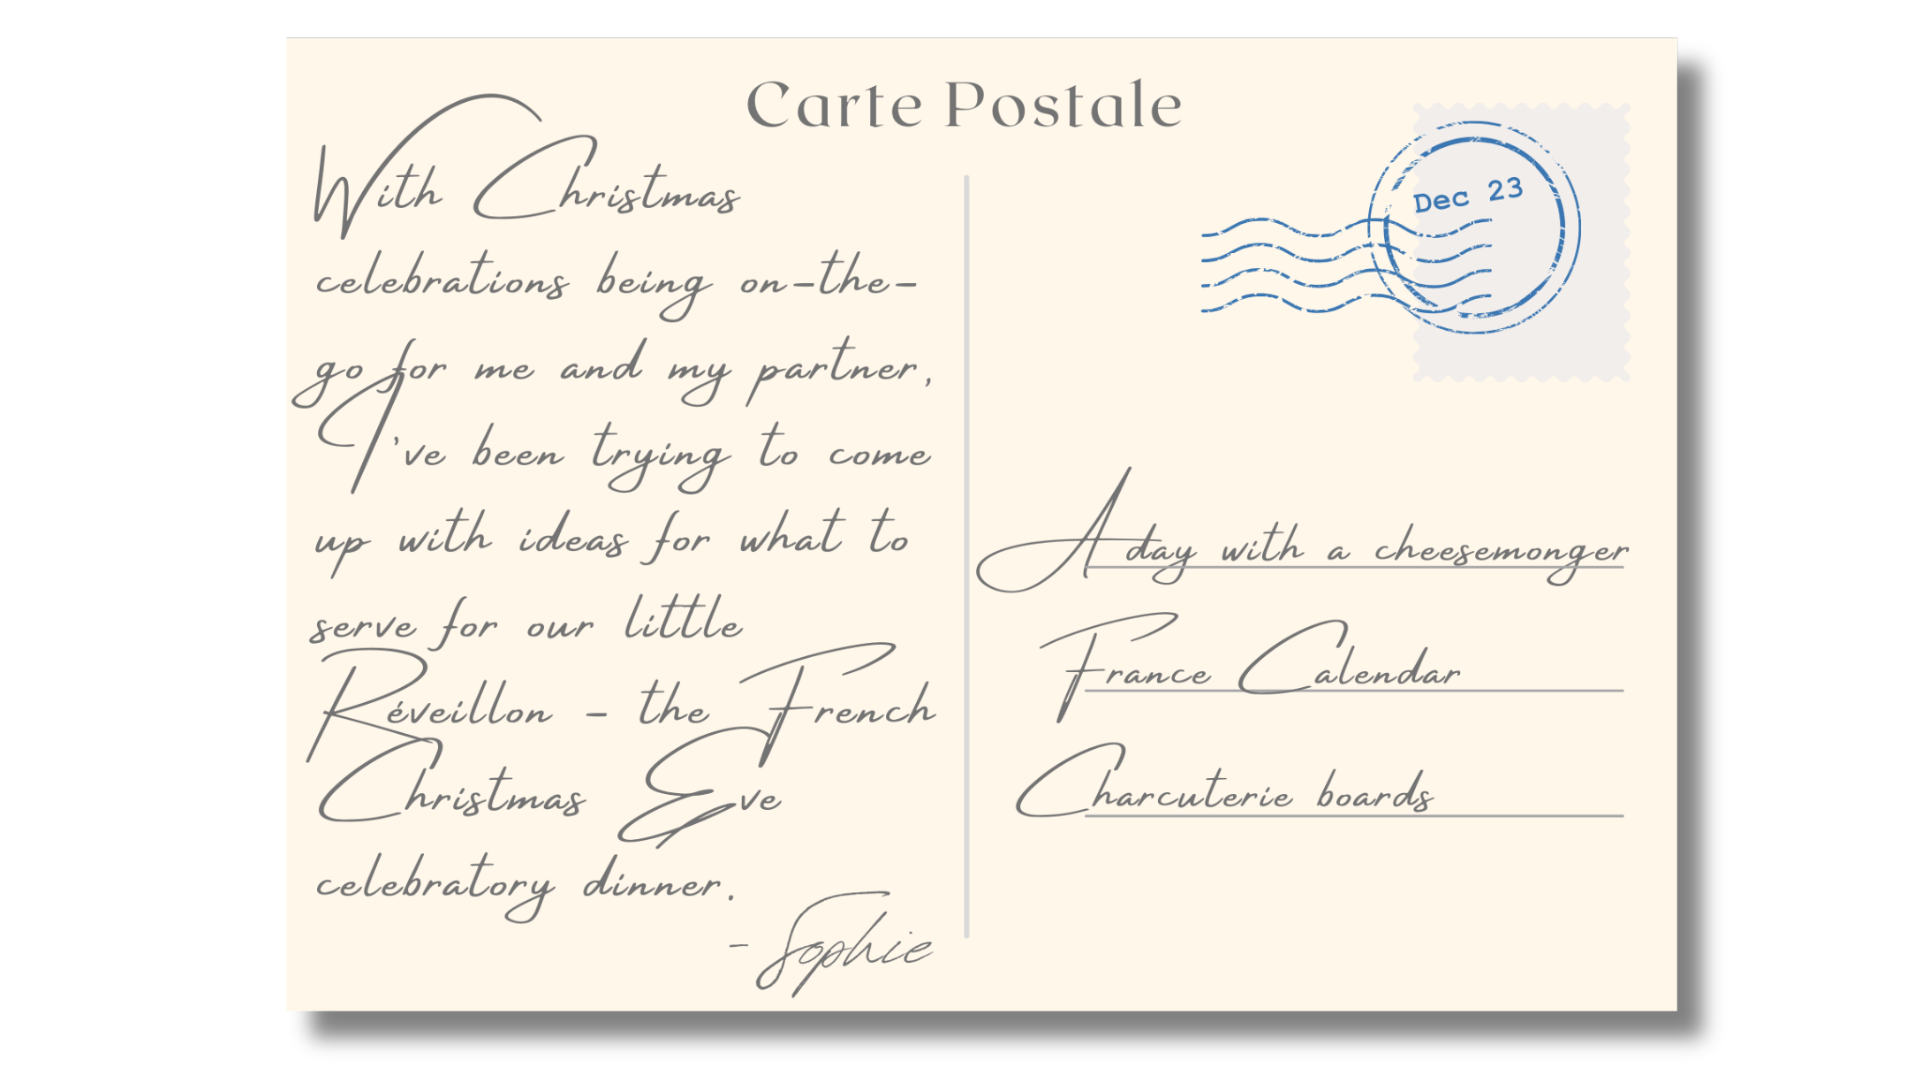 Carte Postale
With Christmas
celebrations being on-the-
go for me and my partner,
I've been trying to come
up with ideas for what to
serve for our little
Réveillon - the French
Christmas Eve
celebratory dinner.
- Sophie
Dec 23
A day with a cheesemonger
France Calendar
Charcuterie boards